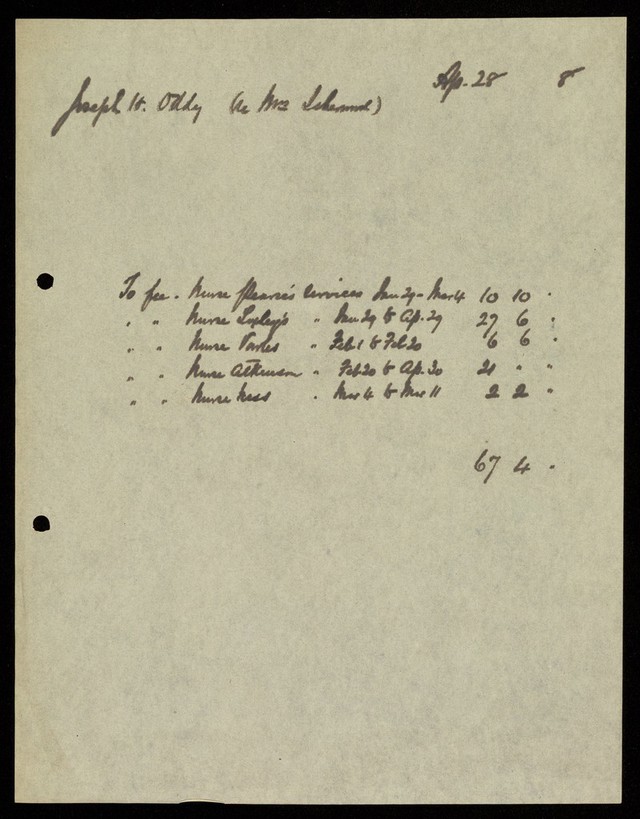 Ap. 28 8
Joseph H. Oddy (re Mrs
To fee . Nurse Pearse's Services Jan 29 - Mar 4 10 10 .
" " Nurse Loxley's " Jan 29 to Ap. 29 27 6 .
" " Nurse " Feb 1 to Feb 20 6 6 .
" " Nurse Atkinson " Feb 20 to Ap. 20 21 " "
" " Nurse Ness " Mar 4 to Mar 11 2 2 "
67 4 .